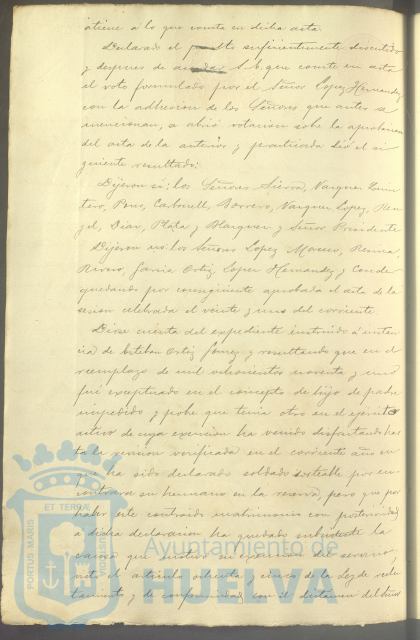 atiene a lo que consta en dicha acta.
Declarado el punto suficientemente discutido
y despues de acordar S. E. que conste en acta
el voto formulado por el Señor Lopez Hernandez
con la adhesion de los Señores que antes se
mencionan, se abrió votacion sobre la aprobacion
del acta de la anterior y practicada dió el si
guiente resultado:
Dijeron si: los Señores Sierra, Vazquez Quin
tero, Pino, Carbonell, Borrero, Vazquez Lopez, Ren
gel, Diaz, Plata y Blazquez y Señor Presidente
Dijeron no: los Señores Lopez
Rivero, Garcia Ortiz, Lopez Hernandez y Conde
quedando por consiguiente aprobada el acta de la
sesion celebrada el veinte y uno del corriente
Diose cuenta del expediente instruido á instan
cia de Esteban Ortiz Gomez y resultando que en el
reemplazo de mil ochocientos noventa y uno
fué exceptuado en el concepto de hijo de padre
impedido y pobre que tenia otro en el ejército
activo de cuya exencion ha venido disfrutando has
ta la revision verificada en el corriente año en
que ha sido declarado soldado sorteable por en
contrarse su hermano en la reserva, pero que por
haber este contraido matrimonio con posterioridad
a dicha declaracion ha quedado subsistente la
causa que motivó su exencion del servicio,
visto el articulo ochenta y cinco de la Ley de reclu
tamiento y de conformidad con el dictamen del Señor
PORTUS MARIS
ET TERRÆ
CUSTODIA
Ayuntamiento de
HUELVA